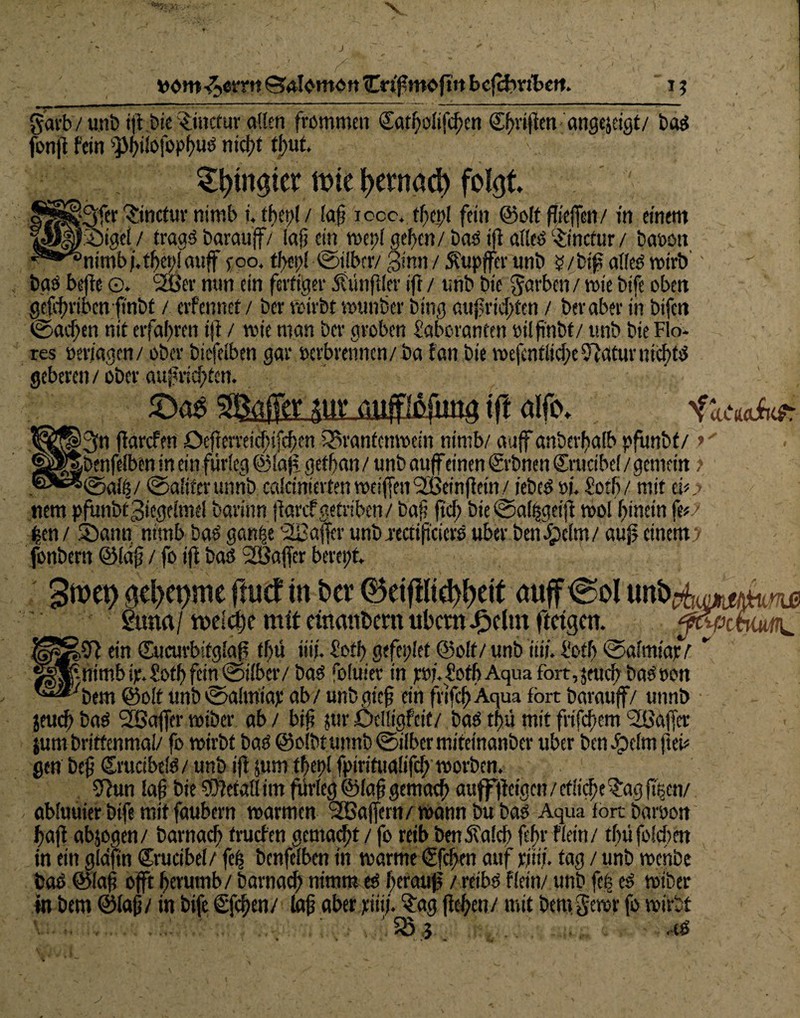 vom Herrn Salomon Trißmosin beschriben. 13
Farb/ und ist die Tinctur allen frommen Catholischen Christen angezeigt/ das
sonst kein Philosophus nicht thut.
Thingier wie hernach folgt.
Iser Tinctur nimb i. theyl/ laß 1000. theyl fein Golt fliessen/ in einem
Tigel/ trags darauff/ laß ein weyl gehen/ das ist alles Tinctur/ davon
nimb j. theyl auff 500. theyl Silber/ Zinn/ Kupffer unnd ☿/ biß alles wird
das beste ☉. Wer nun ein fertiger Künstler ist/ und die Farben/ wie dise oben
geschriben findt/ erkennet/ der wirdt wunder ding außrichten/ der aber in disen
Sachen nit erfahren ist/ wie man der groben Laboranten vil findt/ und die Flo-
res verjagen/ oder dieselben gar verbrennen/ da kan die wesentliche Natur nichts
geberen/ oder außrichten.
Das Wasser zur aufflösung ist also.
In starcken Oesterreichischen Brantenwein nimb/ auff anderhalb pfundt/
denselben in ein fürleg Glaß gethan/ und auff einen Erdnen Crucibel/ gemein
Saltz/ Saliter unnd calcinierten weissen Weinstein/ jedes vi. Loth/ mit ei-
nem pfundt Ziegelmel darinn starck getriben/ daß sich die Saltzgeist wol hinein se-
tzen/ Dann nimb das gantze Wasser und rectificiers uber den Helm/ auß einem
sondern Glaß/ so ist das Wasser bereyt.
Zwey geheyme stuck in der Geistlichheit auff Sol und
Luna/ welche mit einandern ubern Helm steigen.
IN ein Cucurbitglaß thü iiij. Loth gefeylet Golt/ und iiij. Loth Salmiax/
nimb ix. Loth fein Silber/ das soluier in xvj. Loth Aqua fort, zeuch das von
dem Golt und Salmiax ab/ und gieß ein frisch Aqua fort darauff/ unnd
zeuch das Wasser wider ab/ biß zur Oelligkeit/ das thü mit frischem Wasser
zum drittenmal/ so wirdt das Goldt unnd Silber miteinander uber den Helm stei-
gen deß Crucibels/ und ist zum theyl spiritualisch worden.
Nun laß die Metall im fürleg Glaß gemach auffsteigen/ etliche Tag sitzen/
abluuier dise mit saubern warmen Wassern/ wann du das Aqua fort darvon
hast abzogen/ darnach trucken gemacht/ so reib den Kalch sehr klein/ thü solchen
in ein gläsin Crucibel/ setz denselben in warme Eschen auf xiiij. tag/ und wende
das Glaß offt herumb/ darnach nimm es herauß/ reibs klein/ und setz es wider
in dem Glaß/ in dise Eschen/ laß aber xiiij. Tag stehen/ mit dem Fewr so wirdt
B 3 es